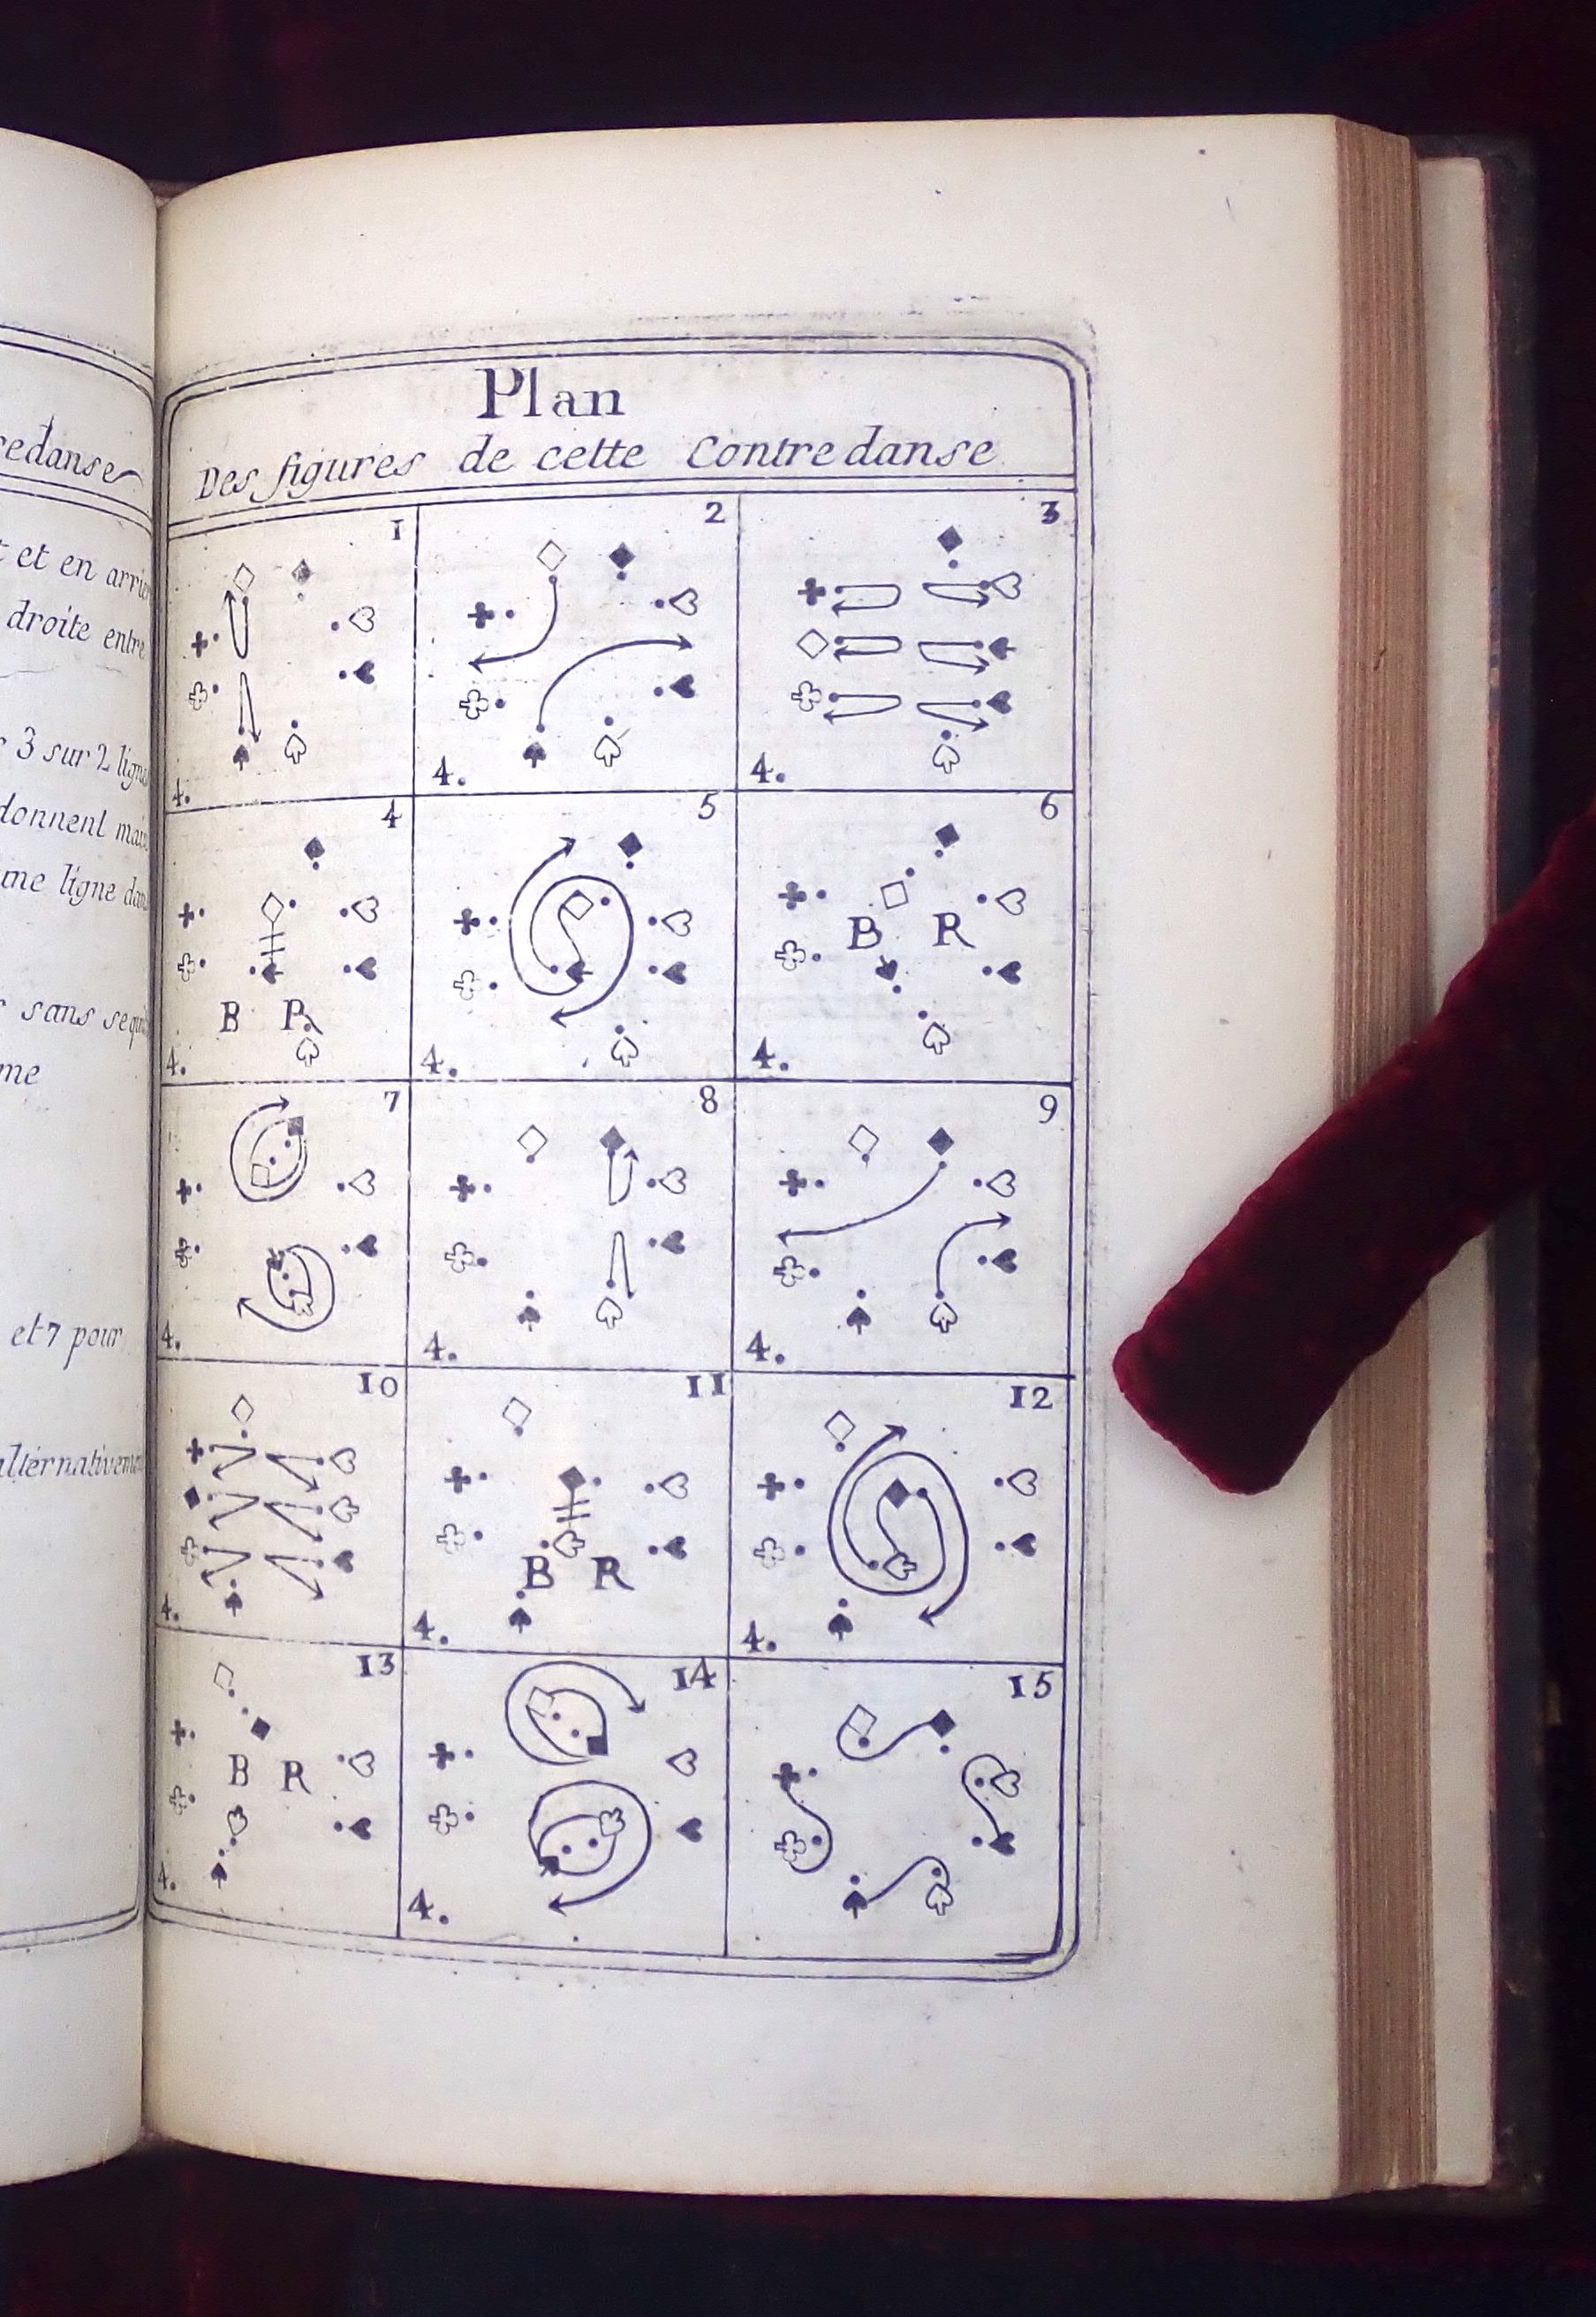 redanse
et en
droite entre
3 sur 2
donnent
ligne
sans
me
et 7 pour
Plan
Des figures de cette Contredanse
1 2 3
4. 4. 4.
4 5 6
B R B R
4. 4. 4.
7 8 9
4. 4. 4.
10 11 12
B R
4. 4. 4.
13 14 15
B R
4. 4.